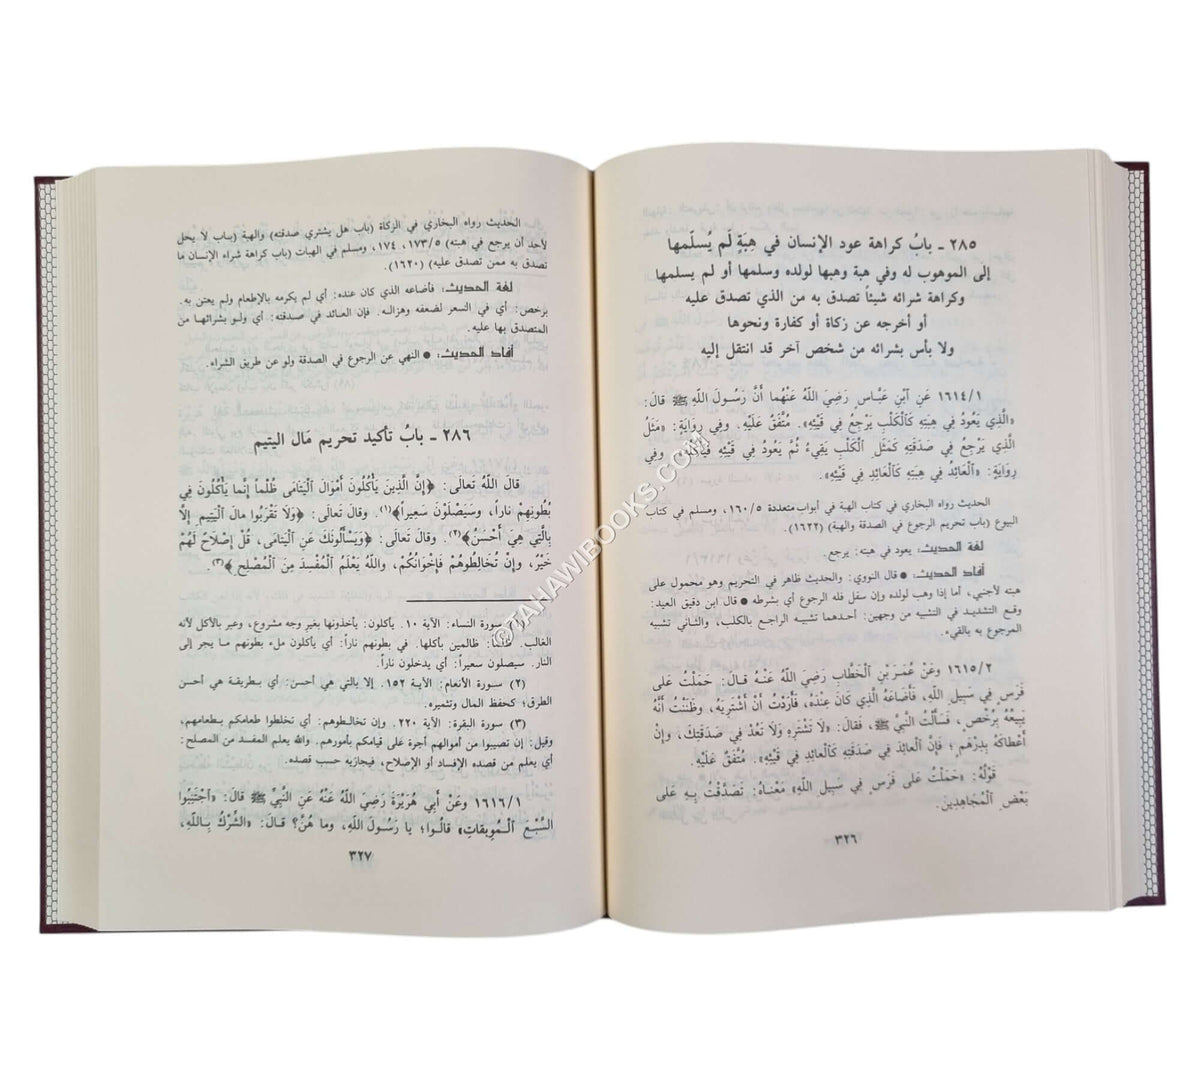 ٢٨٥ ـ بابُ كراهة عود الإنسان في هِبَةٍ لَم يُسلّمها
إلى الموهوب له وفي هبة وهبها لولده وسلمها أو لم يسلمها
وكراهة شرائه شيئاً تصدق به من الذي تصدق عليه
أو أخرجه عن زكاة أو كفارة ونحوها
ولا بأس بشرائه من شخص آخر قد انتقل إليه
١٦١٤/١ عَنِ ابْنِ عَبَّاسٍ رَضِيَ اللَّهُ عَنْهُما أَنَّ رَسُولَ اللَّهِ ﷺ قالَ:
«الَّذِي يَعُودُ فِي هِبَتِهِ كَالكَلْبِ يَرْجِعُ فِي قَيْئِهِ». مُتَّفَقٌ عَلَيْهِ. وفِي رِوَايَةٍ: «مَثَلُ
الَّذِي يَرْجِعُ فِي صَدَقَتِهِ كَمَثَلِ الْكَلْبِ يَقِيءُ ثُمَّ يَعُودُ فِي قَيْئِهِ فَيَأْكُلُهُ». وفِي
رِوَايَةٍ: «اَلْعَائِدُ فِي هِبَتِهِ كَالعَائِدِ فِي قَيْئِهِ».
الحديث رواه البخاري في كتاب الهبة في أبواب متعددة ١٦٠/٥، ومسلم في كتاب
البيوع (باب تحريم الرجوع في الصدقة والهبة) (١٦٢٢).
لغة الحديث: يعود في هبته: يرجع.
أفاد الحديث: ● قال النووي: والحديث ظاهر في التحريم وهو محمول على
هبته لأجنبي، أما إذا وهب لولده وإن سفل فله الرجوع أي بشرطه ● قال ابن دقيق العيد:
وقع التشديد في التشبيه من وجهين: أحدهما تشبيه الراجع بالكلب، والثاني تشبيه
المرجوع به بالقيء.
١٦١٥/٢ وَعَنْ عُمَرَ بْنِ الْخَطَّابِ رَضِيَ اللَّهُ عَنْهُ قَالَ: حَمَلْتُ عَلَى
فَرَسٍ فِي سَبِيلِ اللَّهِ، فَأَضَاعَهُ الَّذِي كَانَ عِنْدَهُ، فَأَرَدْتُ أَنْ أَشْتَرِيَهُ، وظَنَنْتُ أَنَّهُ
يَبِيعُهُ بِرُخْصٍ، فَسَأَلْتُ النَّبِيَّ ﷺ، فَقالَ: «لا تَشْتَرِهِ وَلَا تَعُدْ فِي صَدَقَتِكَ، وإِنْ
أَعْطاكَهُ بِدِرْهَمٍ ؛ فَإِنَّ العَائِدَ فِي صَدَقَتِهِ كَالْعَائِدِ فِي قَيْئِهِ». مُتَّفَقٌ عَلَيْهِ.
قَوْلُهُ: «حَمَلْتُ عَلى فَرَسٍ فِي سَبِيلِ اللَّهِ» مَعْنَاهُ: تَصَدَّقْتُ بِهِ عَلَى
بَعْضِ الْمُجَاهِدِينَ.
٣٢٦
الحديث رواه البخاري في الزكاة (باب هل يشتري صدقته) والهبة (باب لا يحل
لأحد أن يرجع في هبته) ١٧٣/٥، ١٧٤، ومسلم في الهبات (باب كراهة شراء الإنسان ما
تصدق به ممن تصدق عليه) (١٦٢٠).
لغة الحديث: فأضاعه الذي كان عنده: أي لم يكرمه بالإطعام ولم يعتن به.
برخص: أي في السعر لضعفه وهزاله. فإن العائد في صدقته: أي ولو بشرائها من
المتصدق بها عليه.
أفاد الحديث: ● النهي عن الرجوع في الصدقة ولو عن طريق الشراء.
٢٨٦ ـ بابُ تأكيد تحريم مَال اليتيم
قَالَ اللَّهُ تَعالَى: ﴿إِنَّ الَّذِينَ يَأْكُلُونَ أَمْوَالَ الْيَتَامَى ظُلْماً إِنَّما يَأْكُلُونَ فِي
بُطُونِهِمْ ناراً، وَسَيَصْلَوْنَ سَعِيراً﴾(١). وقالَ تَعالَى: ﴿وَلَا تَقْرَبُوا مالَ الْيَتِيمِ إِلَّا
بِالَّتِي هِيَ أَحْسَنُ﴾(٢). وقالَ تَعَالَى: ﴿وَيَسْأَلُونَكَ عَنِ الْيَتَامَى، قُلْ إِصْلَاحٌ لَهُمْ
خَيْرٌ، وإِنْ تُخَالِطُوهُمْ فَإِخْوَانُكُمْ، واللَّهُ يَعْلَمُ الْمُفْسِدَ مِنَ الْمُصْلِحِ﴾(٣).
(١) سورة النساء: الآية ١٠. يأكلون: يأخذونها بغير وجه مشروع، وعبر بالأكل لأنه
الغالب. ظلماً: ظالمين بأكلها. في بطونهم ناراً: أي يأكلون ملء بطونهم ما يجر إلى
النار. سيصلون سعيراً: أي يدخلون ناراً.
(٢) سورة الأنعام: الآية ١٥٢. إلا بالتي هي أحسن: أي بطريقة هي أحسن
الطرق؛ كحفظ المال وتثميره.
(٣) سورة البقرة: الآية ٢٢٠. وإن تخالطوهم: أي تخلطوا طعامكم بطعامهم،
وقيل: إن تصيبوا من أموالهم أجرة على قيامكم بأمورهم. والله يعلم المفسد من المصلح:
أي يعلم من قصده الإفساد أو الإصلاح، فيجازيه حسب قصده.
١٦١٦/١ وَعَنْ أَبِي هُرَيْرَةَ رَضِيَ اللَّهُ عَنْهُ عَنِ النَّبِيِّ ﷺ قالَ: «اجْتَنِبُوا
السَّبْعَ الْمُوبِقَاتِ» قالُوا: يا رَسُولَ اللَّهِ، وما هُنَّ؟ قالَ: «الشِّرْكُ بِاللَّهِ،
٣٢٧
©TAHAWIBOOKS.COM